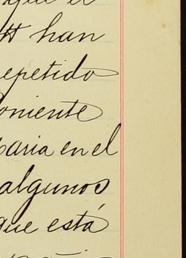 que el
han
epetido
oniente
aria en el
algunos
que está